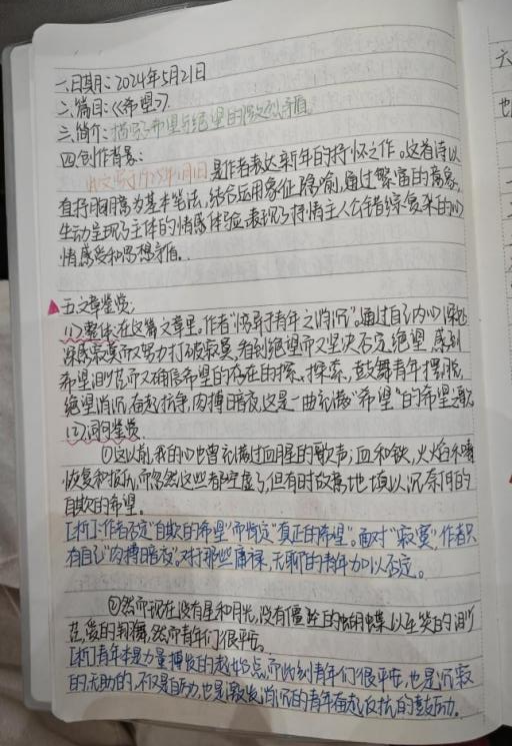 一、日期：2024年5月21日
二、篇目：《希望》
三、简介：描写了希望与绝望的深刻矛盾。
四、创作背景：
此文写于1925年1月1日是作者表达新年的抒怀之作。这首诗以
直抒胸臆为基本笔法，结合运用象征、隐喻，通过繁富的意象，
生动呈现了主体的情感体验，表现了抒情主人公错综复杂的心
情感受和思想矛盾。
五、文章鉴赏：
(1)整体：在这篇文章里，作者"惊异于青年之消沉"。通过自己内心深处
深感寂寞而又努力打破寂寞，看到绝望而又坚决否定绝望，感到
希望渺茫而又确信希望的存在的探、探索，鼓舞青年摆脱
绝望消沉，奋起抗争，肉搏暗夜，这是一曲充满"希望"的希望之歌
(2)词句鉴赏
①这以前，我的心也曾充满过血腥的歌声：血和铁，火焰和毒
恢复和报仇，而忽然这些都空虚了，但有时故意地填以沉奈何的
自欺的希望。
[析]：作者否定"自欺的希望"而肯定"真正的希望"。面对"寂寞"，作者只
有自己"肉搏暗夜"。对于那些庸碌、无聊的青年加以否定。
②然而现在没有星和月光，没有僵坠的蝴蝶以至笑的渺
茫，爱的翔舞，然而青年们很平安。
[析]青年本是力量搏发的起始点，而此刻青年们很平安，也是沉寂
的无助的，不仅是自励，也是激发消沉的青年奋起反抗的鼓动。
六
也